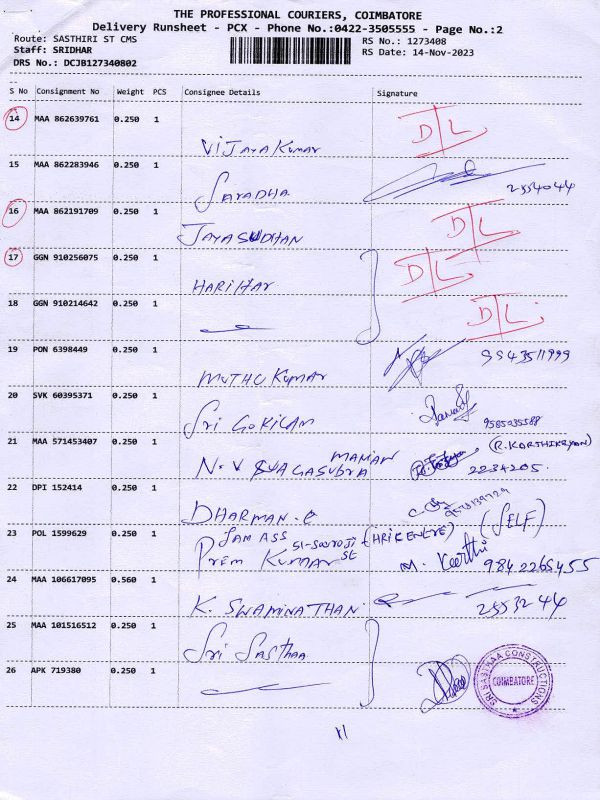 THE PROFESSIONAL COURIERS, COIMBATORE
Delivery Runsheet - PCX - Phone No.:0422-3505555 - Page No.:2
Route: SASTHIRI ST CMS
Staff: SRIDHAR
DRS No.: DCJB127340802
RS No.: 1273408
RS Date: 14-Nov-2023
S No Consignment No Weight PCS Consignee Details Signature
14 MAA 862639761 0.250 1 VIJAYA KUMAR D/L
15 MAA 862283946 0.250 1 SARADHA 2554044
16 MAA 862191709 0.250 1 JAYASUDHAN D/L
17 GGN 910256075 0.250 1 HARIHAR D/L
18 GGN 910214642 0.250 1 D/L
19 PON 6398449 0.250 1 MUTHU KUMAR 9543511999
20 SVK 60395371 0.250 1 SRI GOKILAM 9585235588
21 MAA 571453407 0.250 1 N.V MANIAN (R.KARTHIKEYAN) 2234205.
22 DPI 152414 0.250 1 DHARMAN.E
23 POL 1599629 0.250 1 JAM ASS (SELF)
PREM KUMAR ST M. Keerthi 9842265455
24 MAA 106617095 0.560 1 K. SWAMINATHAN 2553244
25 MAA 101516512 0.250 1 Sri Sasthaa
26 APK 719380 0.250 1 SRI SASTHAA CONSTRUCTIONS COIMBATORE